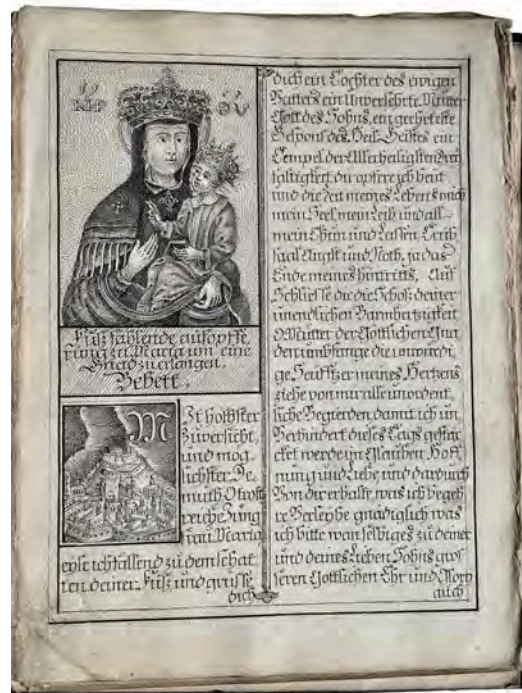 Fusz fahlende aufopffe,
rung zu Maria um eine
Gnad zu erlangen.
Gebett.
Mit hochster
Zuversicht,
und mog
lichster De
muth O trost
reiche Jung
frau Maria
eyle ich fallend zu dem schat
ten deiner Fusz und grusse
dich
dich ein Tochter des ewigen
Vatters ein Unversehrte Mutter
Gott des Sohns, ein
Gespons des Heil: Geistes ein
Tempel der Allerheiligsten Drey
faltigkeit, du opfere ich heut
und die Zeit meines Lebens mich
mein Seel mein Leib und all
mein Thun und Lassen, Trib
saal Angst und Noth, ja das
Ende meines hintritts, Auf
Schliesse die die Schosz deiner
unendlichen Barmhertzigkeit
O Mutter der Gottlichen Gna
den umfange die unwurdi
ge Seuffzer meines Hertzens
ziehe von mir alle unordent
liche Begierden, damit ich un
Verhindert dieses Tags gestar
cket werde im Glauben Hoff
nung und Liebe und dardurch
Von dir erhalte was ich begeh
re Verleyhe gnadiglich was
ich bitte wan selbiges zu deiner
und deines Lieben Sohns gros
seren Gottlichen Ehr und Glory
auch